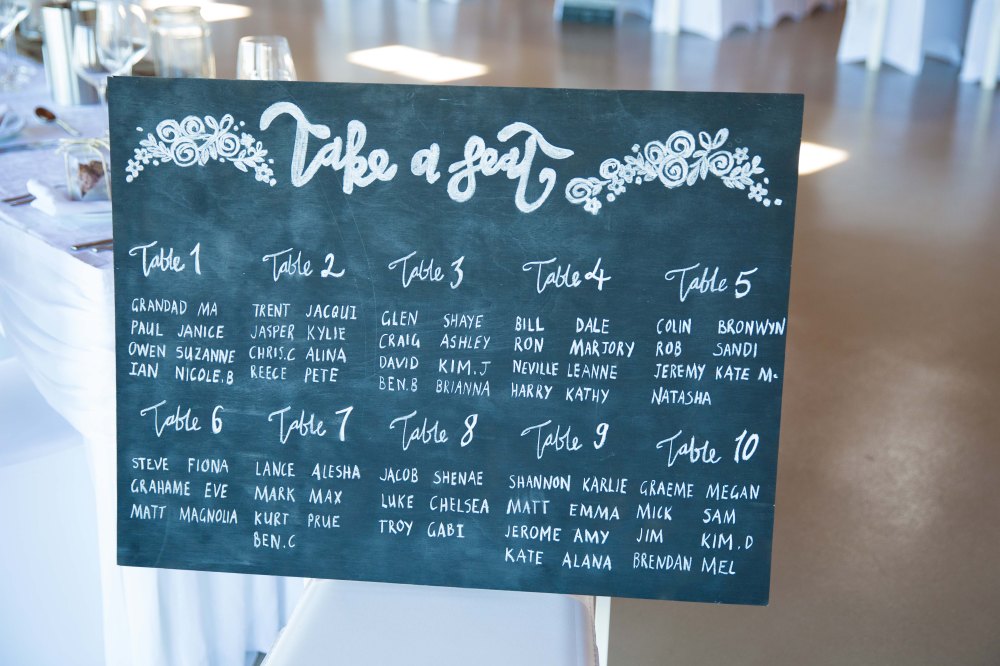 Take a seat
Table 1
GRANDAD MA
PAUL JANICE
OWEN SUZANNE
IAN NICOLE.B
Table 2
TRENT JACQUI
JASPER KYLIE
CHRIS.C ALINA
REECE PETE
Table 3
GLEN SHAYE
CRAIG ASHLEY
DAVID KIM.J
BEN.B BRIANNA
Table 4
BILL DALE
RON MARJORY
NEVILLE LEANNE
HARRY KATHY
Table 5
COLIN BRONWYN
ROB SANDI
JEREMY KATE Mc
NATASHA
Table 6
STEVE FIONA
GRAHAME EVE
MATT MAGNOLIA
Table 7
LANCE ALESHA
MARK MAX
KURT PRUE
BEN.C
Table 8
JACOB SHENAE
LUKE CHELSEA
TROY GABI
Table 9
SHANNON KARLIE
MATT EMMA
JEROME AMY
KATE ALANA
Table 10
GRAEME MEGAN
MICK SAM
JIM KIM.D
BRENDAN MEL